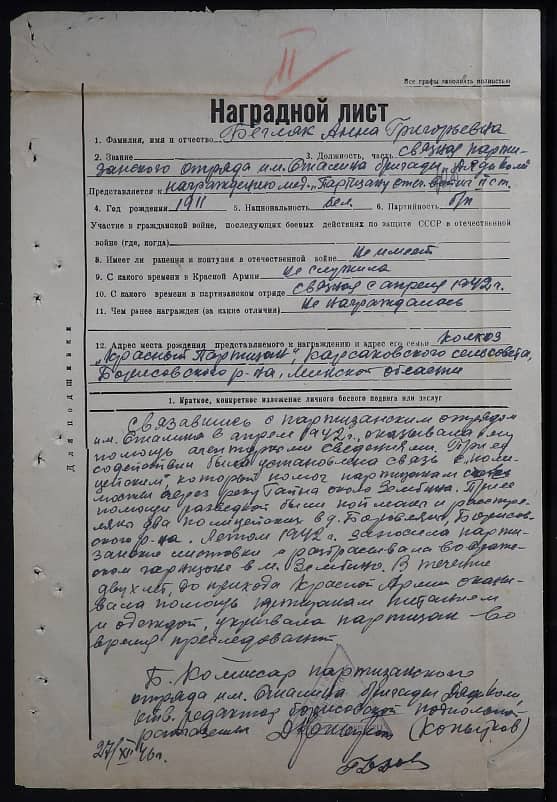 II
Все графы заполнять полностью
Наградной лист
1. Фамилия, имя и отчество Бегляк Анна Григорьевна
2. Звание 3. Должность, часть связная парти-
занского отряда им. Сталина бригады
Представляется к награждению мед. "Партизану отеч. войны" II ст.
4. Год рождения 1911 5. Национальность бел. 6. Партийность б/п
Участие в гражданской войне, последующих боевых действиях по защите СССР в отечественной
войне (где, когда)
8. Имеет ли ранения и контузия в отечественной войне Не имеет
9. С какого времени в Красной Армии Не служила
10. С какого времени в партизанском отряде связная с апреля 1942 г.
11. Чем ранее награжден (за какие отличия) Не награждалась
12. Адрес места рождения представляемого к награждению и адрес его семьи колхоз
"Красный Партизан" Карсаковского сельсовета,
Борисовского р-на, Минской области
Для подшивки
1. Краткое, конкретное изложение личного боевого подвига или заслуг
Связавшись с партизанским отрядом
им. Сталина в апреле 1942 г., оказывала ему
помощь агентурными сведениями. При её
содействии была установлена связь с поли-
цейским, который помог партизанам
мост через реку Гайна около Зембина. При её
помощи разведкой были пойманы и расстре-
ляны два полицейских в д. Борисов-
ского р-на. Летом 1942 г. заносила парти-
занские листовки и разбрасывала во враже-
ском гарнизоне в м. Зембино. В течение
двух лет, до прихода Красной Армии оказы-
вала помощь партизанам питанием
и одеждой, укрывала партизан во
время преследования
Б. Комиссар партизанского
отряда им. Сталина бригады Дяди Коли
отв. редактор Борисовской подпольной
(Копытков)
27/XII 46 г.